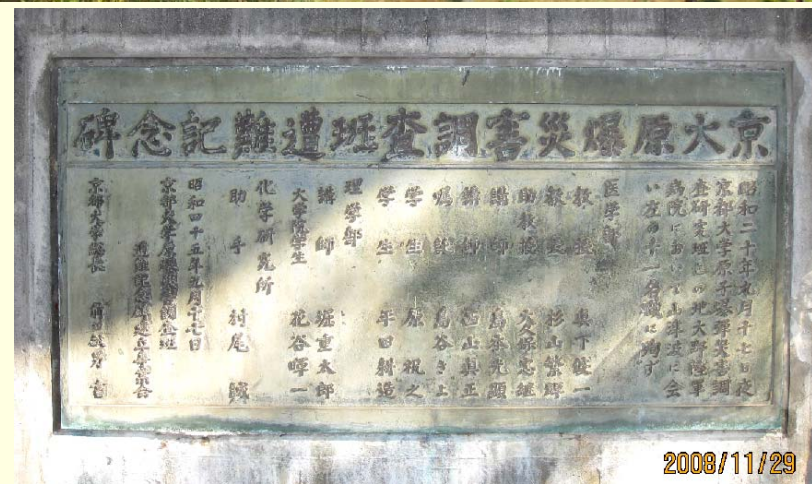 京大原爆災害調査班遭難記念碑
昭和二十年九月十七日夜
京都大学原子爆弾災害調
査研究班この地大野陸軍
病院において山津波に会
い左の十一名職に殉ず
医学部
教授 真下俊一
教授 杉山繁輝
助教授 大久保忠継
講師 島本光顕
講師 西山真正
嘱託 島谷きよ
学生 原祝之
学生 平田耕造
理学部
講師 堀重太郎
大学院学生 花谷暉一
化学研究所
助手 村尾誠
昭和四十五年九月十七日
京都大学原爆災害調査班
遭難記念碑建立
京都大学総長 前田敏男 書
2008/11/29